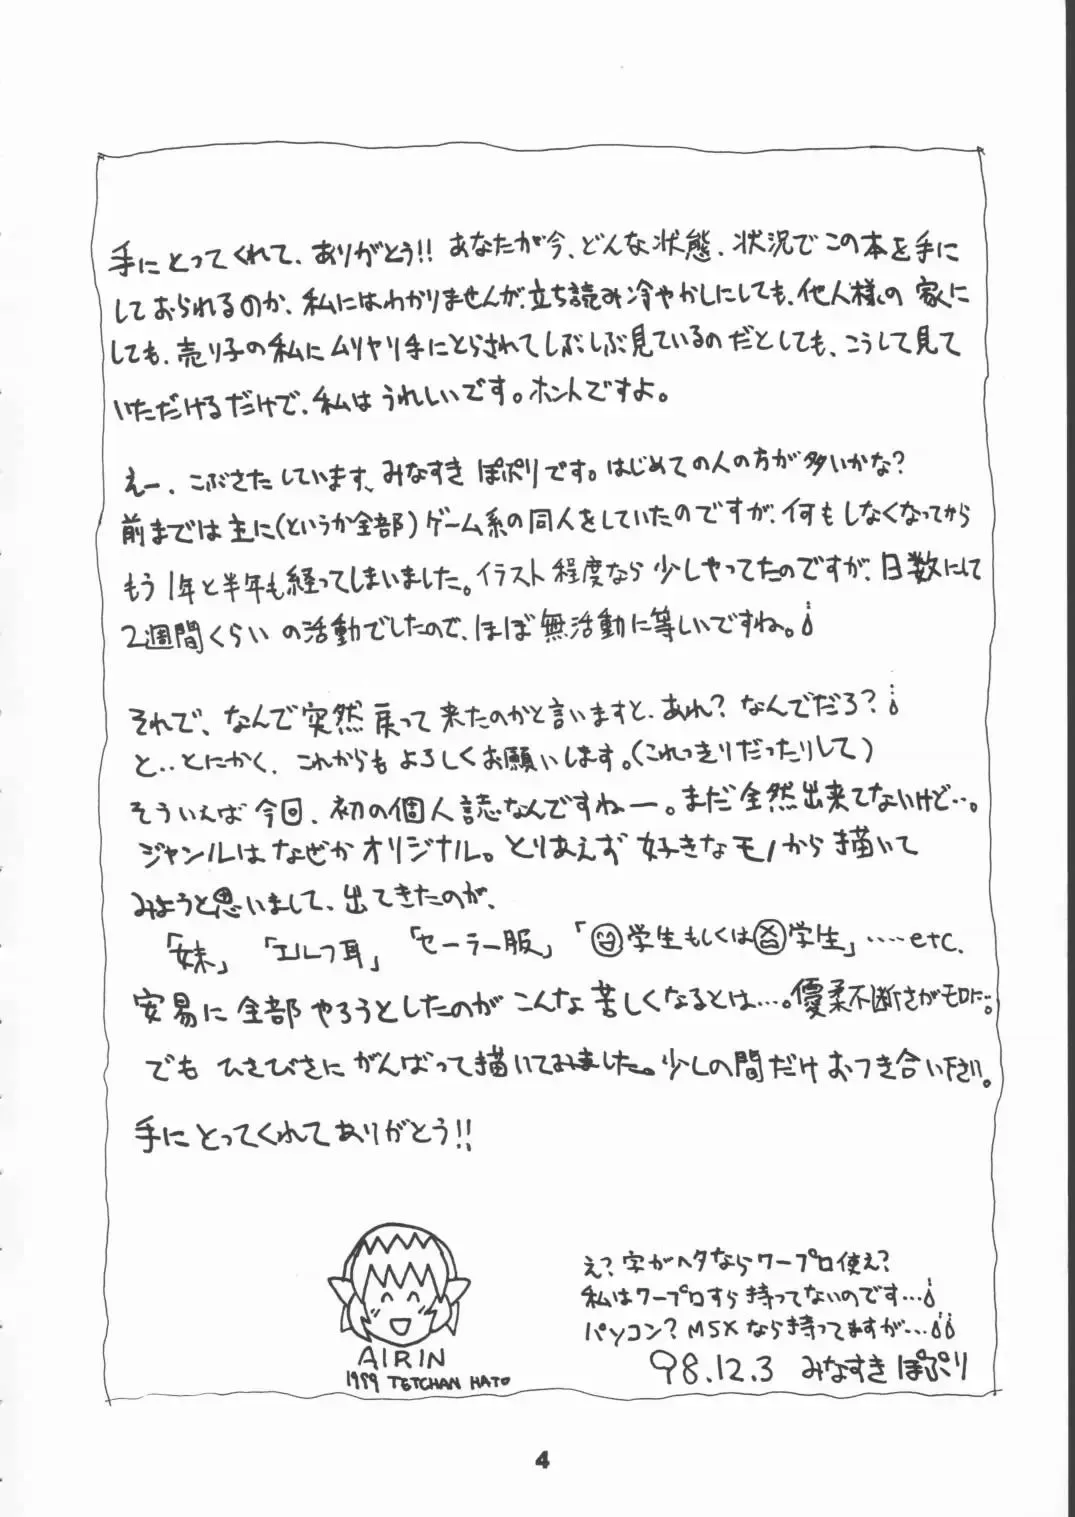 手にとってくれて、ありがとう!! あなたが今、どんな状態、状況でこの本を手に
しておられるのか、私にはわかりませんが、立ち読み冷やかしにしても、他人様の家に
しても、売り子の私にムリヤリ手にとらされてしぶしぶ見ているのだとしても、こうして見て
いただけるだけで、私はうれしいです。ホントですよ。
えー、こぶさたしています、みなすきぽぷりです。はじめての人の方が多いかな?
前までは主に(というか全部)ゲーム系の同人をしていたのですが、何もしなくなってから
もう1年と半年も経ってしまいました。イラスト程度なら少しやってたのですが、日数にして
2週間くらいの活動でしたので、ほぼ無活動に等しいですね。
それで、なんで突然戻って来たのかと言いますと、あれ?なんでだろ?
と‥とにかく、これからもよろしくお願いします。(これっきりだったりして)
そういえば今回、初の個人誌なんですねー。まだ全然出来てないけど…。
ジャンルはなぜかオリジナル。とりあえず好きなモノから描いて
みようと思いまして、出てきたのが、
「妹」「エルフ耳」「セーラー服」「学生もしくは学生」……etc.
安易に全部やろうとしたのがこんな苦しくなるとは…。優柔不断さがモロに…。
でもひさびさにがんばって描いてみました。少しの間だけおつき合い下さい。
手にとってくれてありがとう!!
AIRIN
1999 TETCHAN HATO
え?字がヘタならワープロ使え?
私はワープロすら持ってないのです…
パソコン?MSXなら持ってますが…
98.12.3 みなすきぽぷり
4